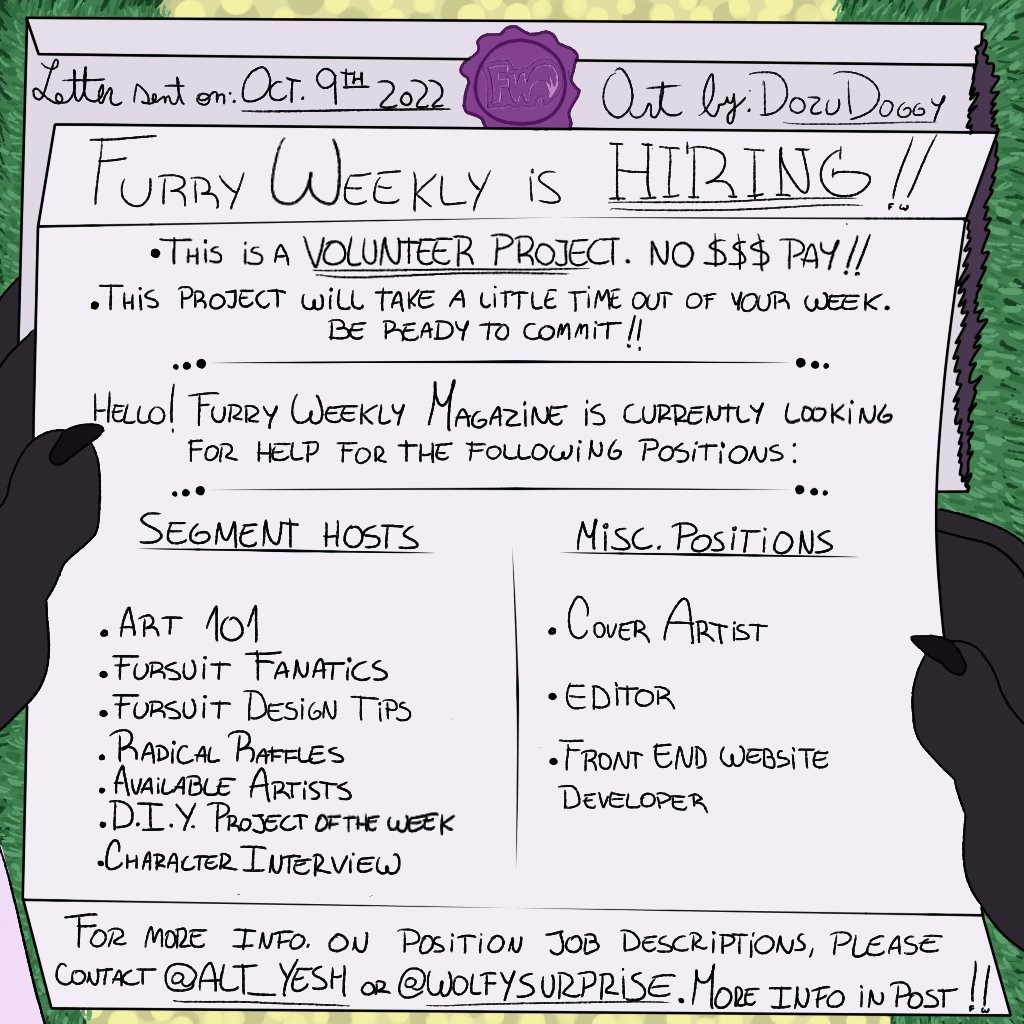 Letter sent on: Oct. 9TH 2022
FW
Art by: DozuDoggy
FURRY WEEKLY iS HIRING!!
FW
•THiS iS A VOLUNTEER PROJECT. NO $$$ PAY!!
•THiS PROJECT WiLL TAKE A LiTTLE TiME OUT OF YOUR WEEK.
BE READY TO COMMiT!!
HELLO! FURRY WEEKLY MAGAZiNE iS CURRENTLY LOOKiNG
FOR HELP FOR THE FOLLOWiNG POSiTiONS:
SEGMENT HOSTS
•ART 101
•FURSUiT FANATiCS
•FURSUiT DESiGN TiPS
•RADiCAL RAFFLES
•AVAiLABLE ARTiSTS
•D.I.Y. PROJECT OF THE WEEK
•CHARACTER INTERViEW
MiSC. POSiTiONS
•COVER ARTiST
•EDiTOR
•FRONT END WEBSiTE
DEVELOPER
FOR MORE INFO. ON POSiTiON JOB DESCRiPTiONS, PLEASE
CONTACT @ALT_YESH OR @WOLFYSURPRiSE. MORE INFO iN POST!!
FW